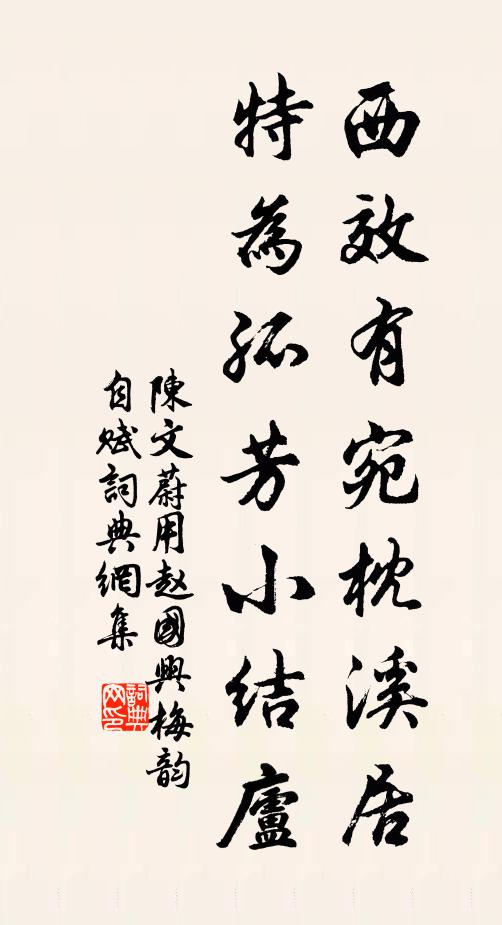 西效有宛枕溪居
特為孤芳小結廬
陳文蔚用赵國興梅韵
自賦詞典網集
詞典网印